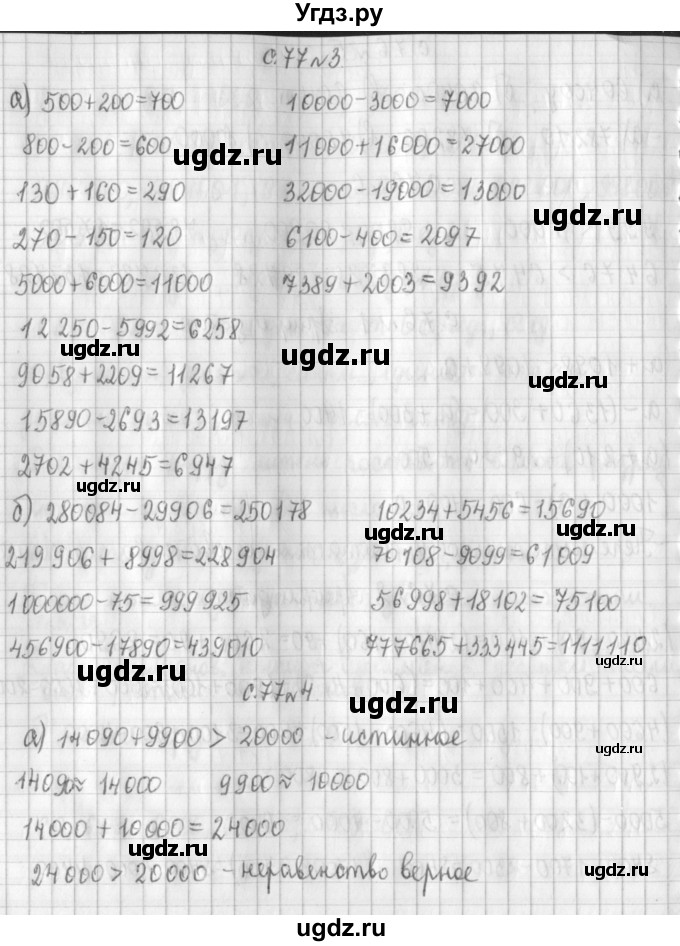 Угдз.ру
с.77 №3
а) 500+200=700 10000-3000=7000
800-200=600 11000+16000=27000
ugdz.ru
130+160=290 32000-19000=13000
ugdz.ru
270-150=120 6100-400=2097
5000+6000=11000 7389+2003=9392
12 250-5992=6258
ugdz.ru ugdz.ru
9058+2209=11267
ugdz.ru
15890-2693=13197
2702+4245=6947
ugdz.ru
б) 280084-29906=250178 10234+5456=15690
ugdz.ru ugdz.ru
219 906+8998=228904 70108-9099=61009
1000000-75=999925 56998+18102=75100
456900-17890=439010 777665+333445=1111110
ugdz.ru ugdz.ru
с.77 №4
ugdz.ru
а) 14090+9900 > 20000 - истинное
ugdz.ru
14090≈14000 9900≈10000
14000+10000=24000
ugdz.ru
24000>20000 - неравенство верное
ugdz.ru
ugdz.ru